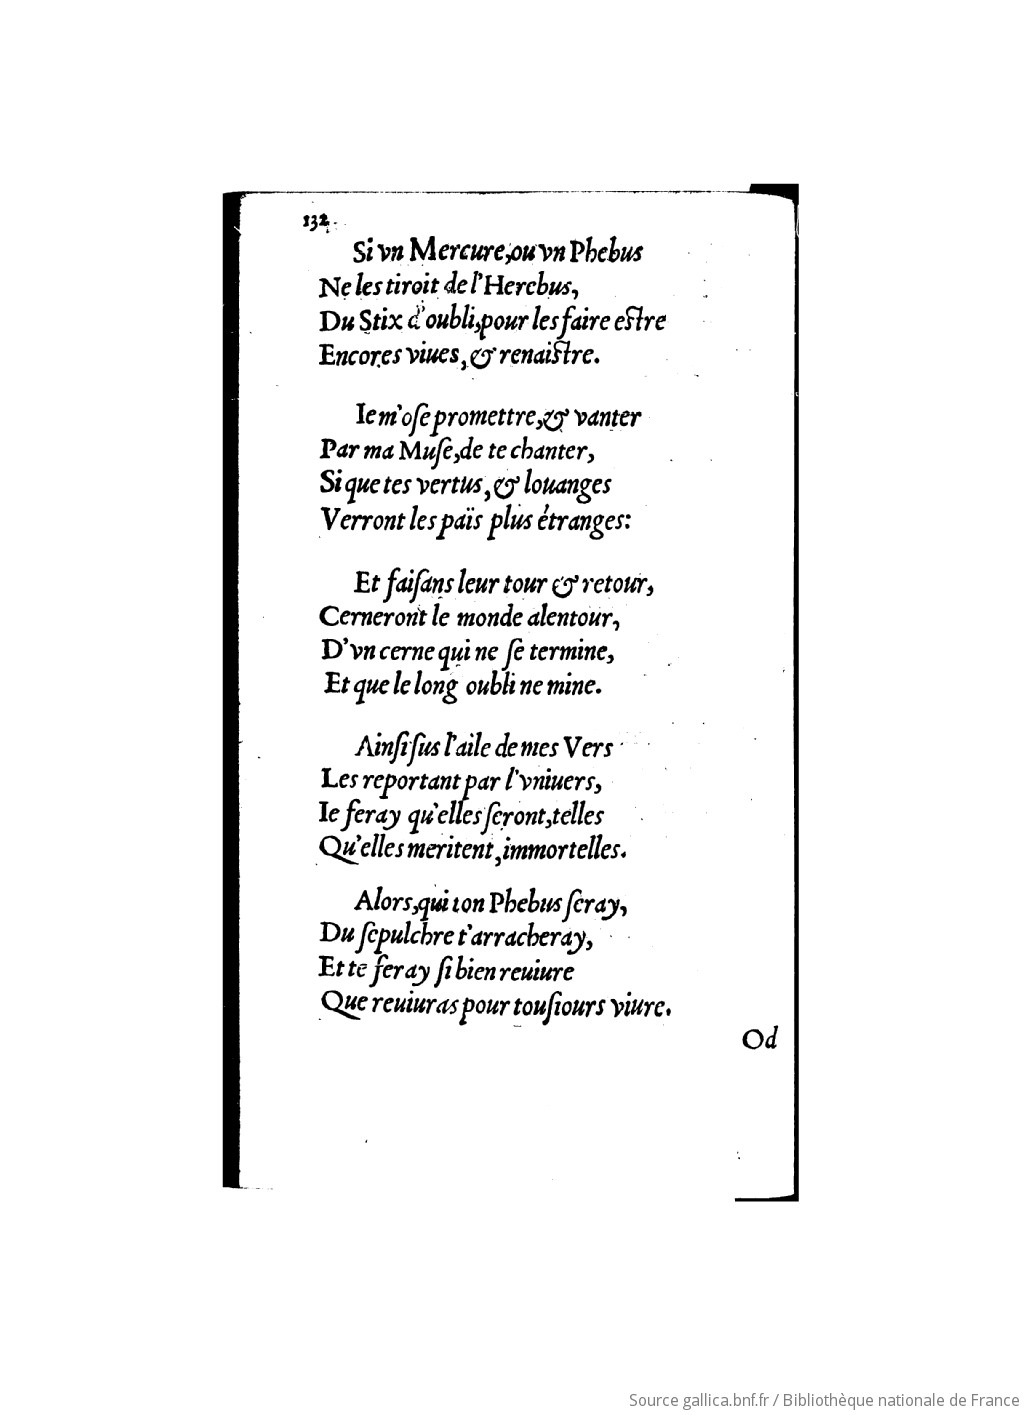 132
Si vn Mercure, ou vn Phebus
Ne les tiroit de l'Herebus,
Du Stix d'oubli, pour les faire estre
Encores viues, & renaistre.
Ie m'oſe promettre, & vanter
Par ma Muſe, de te chanter,
Si que tes vertus, & louanges
Verront les païs plus étranges:
Et faiſans leur tour & retour,
Cerneront le monde alentour,
D'vn cerne qui ne ſe termine,
Et que le long oubli ne mine.
Ainſi ſus l'aile de mes Vers
Les reportant par l'vniuers,
Ie feray qu'elles ſeront, telles
Qu'elles meritent, immortelles.
Alors, qui ton Phebus ſeray,
Du ſepulchre t'arracheray,
Et te feray ſi bien reuiure
Que reuiuras pour touſiours viure.
Od
Source gallica.bnf.fr / Bibliothèque nationale de France